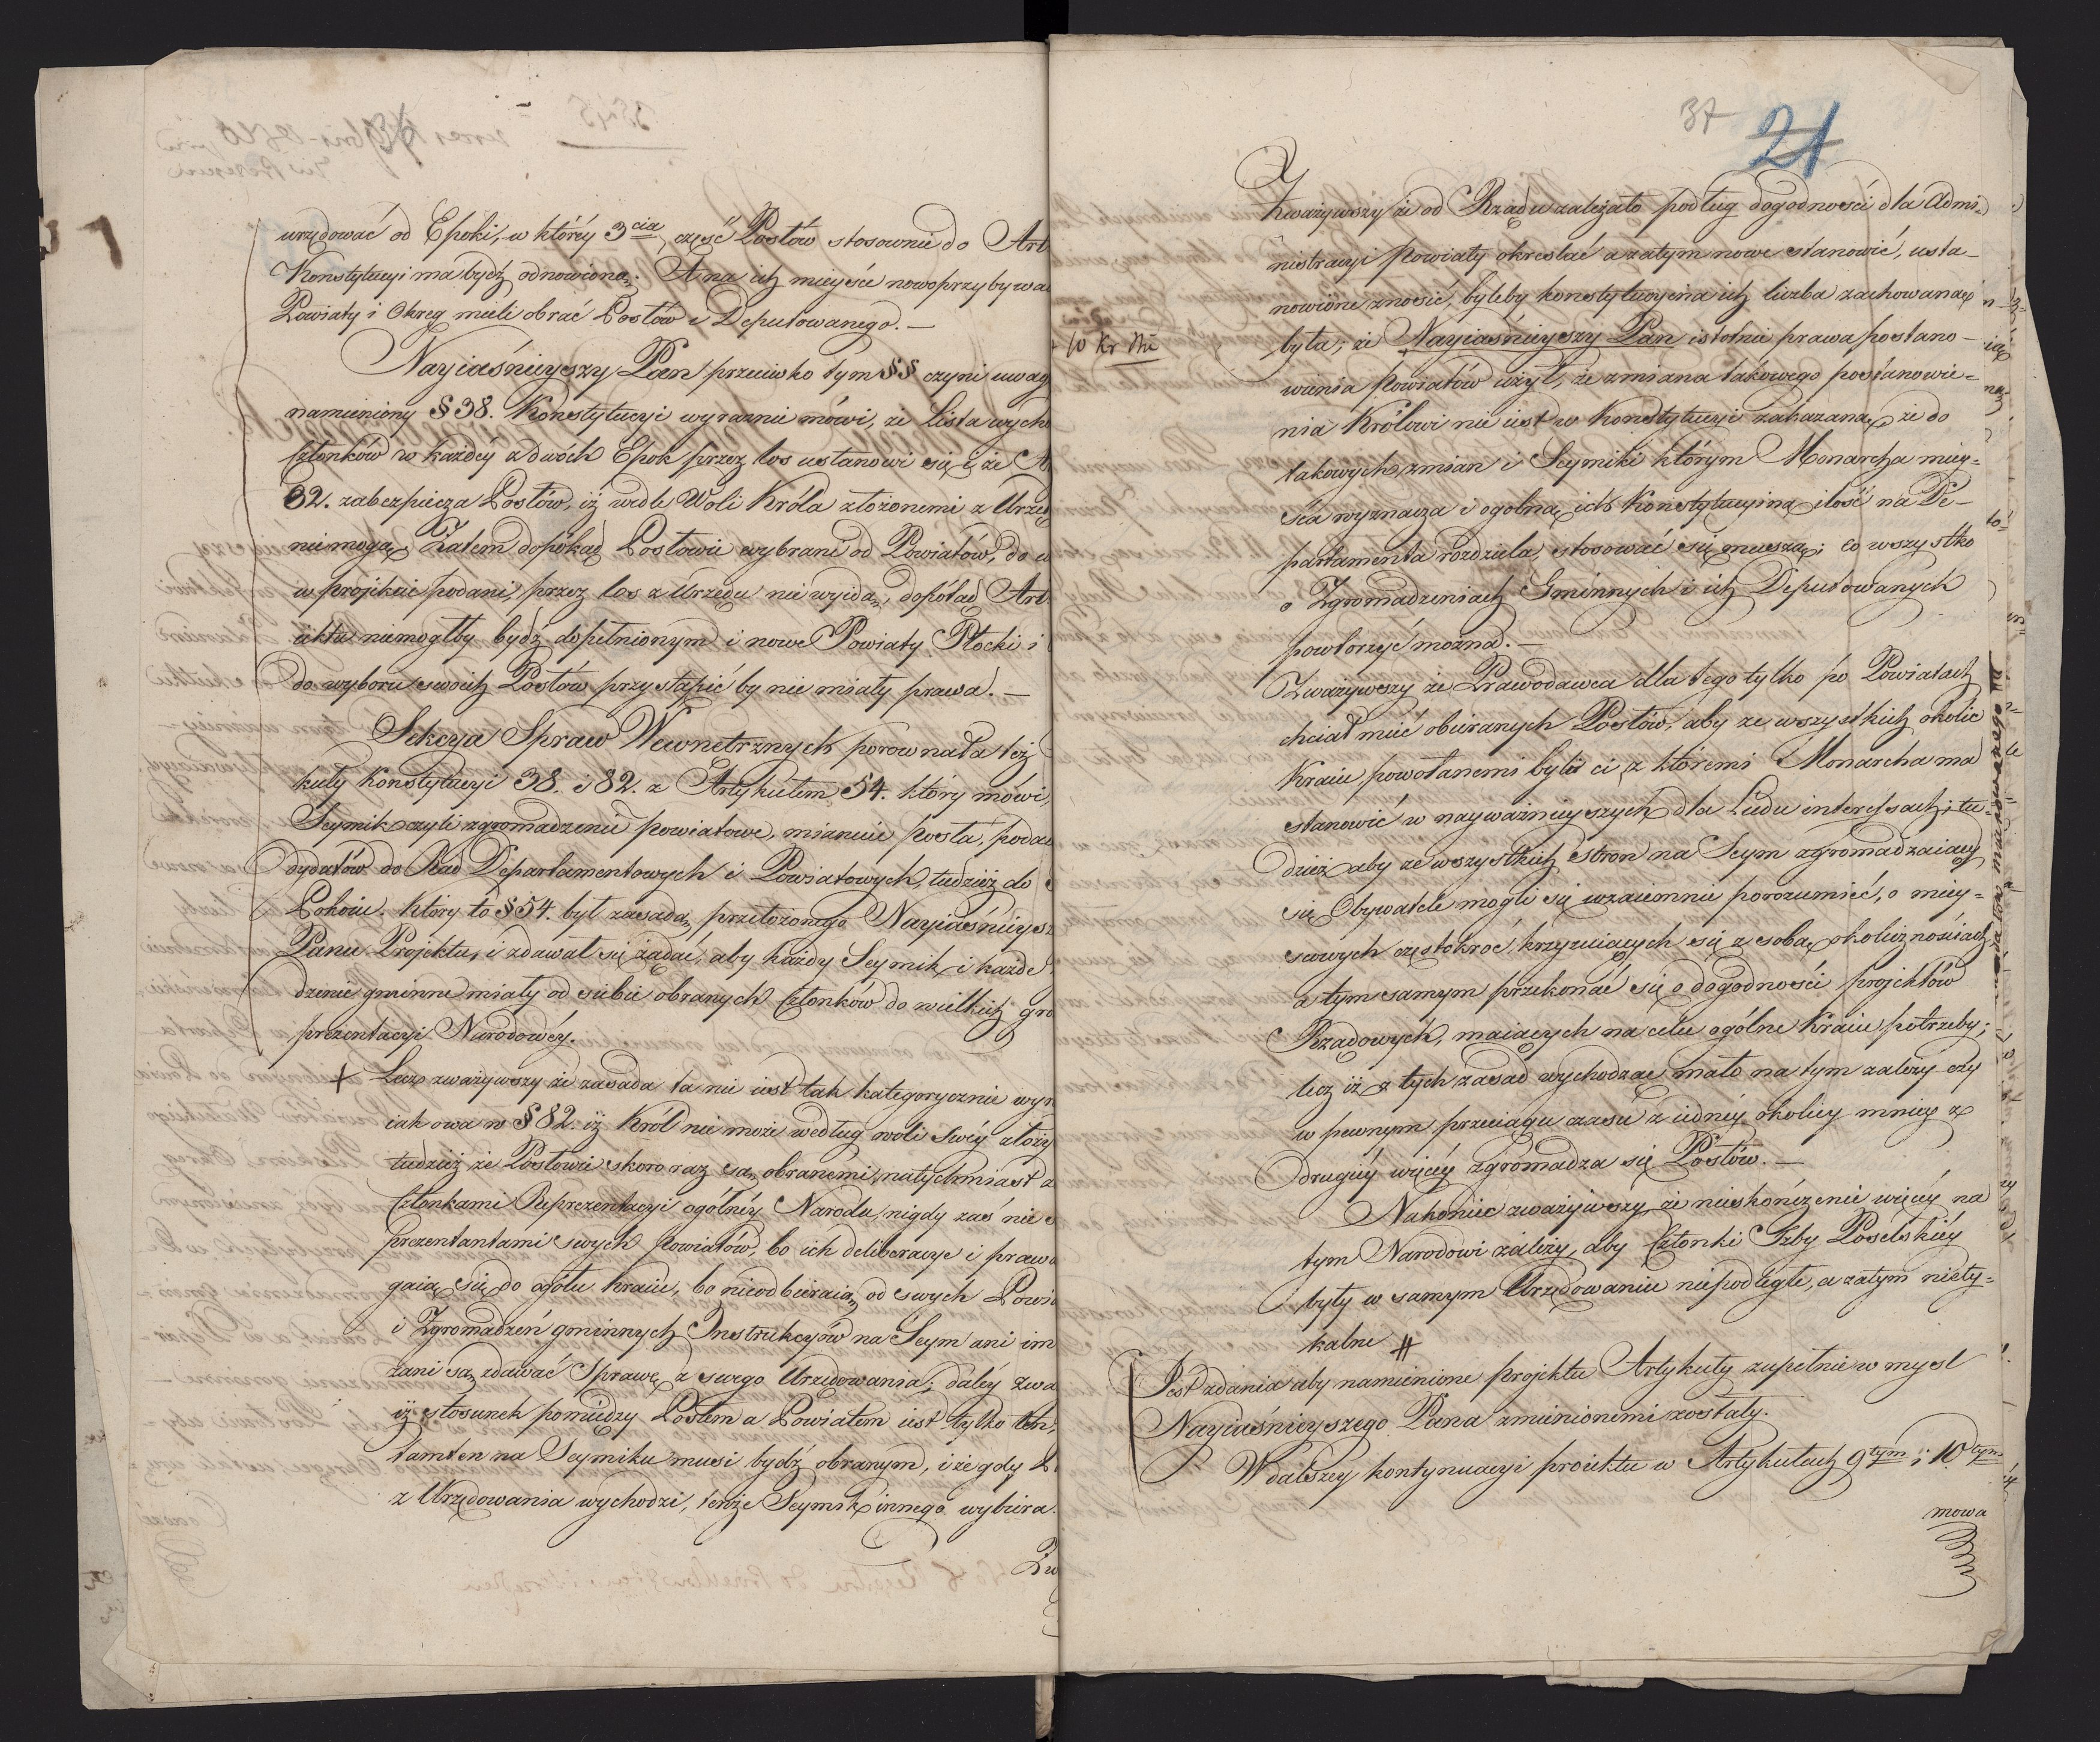 urzędować od Epoki, w któréy 3cia część Posłów stosownie do Art
Konstytucyi ma bydź odnowiona. A na ich mieysce nowoprzybywa
Powiaty i Okręg mieli obrać Posłów i Deputowanego. —
Nayiaśnieyszy Pan przeciwko tym §§ czyni uwag
namieniony §38. Konstytucyi wyraznie mówi, że Lista wych
Członków w każdéy z dwóch Epok przez los ustanowi się i że A
82. zabezpiecza Posłów, iż wedle Woli Króla złożonemi z Urzę
nie mogą. Zatem dopókąd Posłowie wybrani od Powiatów, do
w projekcie podani, przez los z Urzędu nie wyidą, dopótąd Art
iektu niemógłby bydź dopełnionym i nowe Powiaty Płocki i
do wyboru swoich Posłów przystąpić by nie miały prawa. —
Sekcya Spraw Wewnętrznych porównała też
kuły Konstytucyi 38. i 82. z Artykułem 54. który mówi,
Seymik czyli zgromadzenie powiatowe, mianuie posła, podai
dydatów do Rad Departamentowych i Powiatowych, tudzież do
Pokoiu. Który to §54. był zasadą, przełożonego Nayiaśnieysz
Panu Projektu, i zdawał się żądać, aby każdy Seymik i każde
dzenie gminne miały od siebie obranych Członków do wielkich gro
prezentacyi Narodowéy.
+ Lecz zważywszy że zasada ta nie iest tak kategorycznie wyr
iak owa w §82. iż Król nie może według woli swéy złoży
tudzież że Posłowie skoro raz są obranemi, natychmiast
Członkami Reprezentacyi ogólnéy Narodu, nigdy zaś nie
prezentantami swych powiatów, bo ich deliberacye i prawo
gaią się do ogółu kraiu, bo nieodbieraią od swych Powia
i Zgromadzeń gminnych Instrukcyów na Seym ani im
zani są zdawać Sprawę z swego Urzędowania; daléy zwa
iż stosunek pomiędzy Posłem a Powiatem iest tylko ten,
tamten na Seymiku musi bydź obranym, i że gdy
z Urzędowania wychodzi, tenże Seymik innego wybiera.
Zw
37 21
Zważywszy że od Rządu zależało podług dogodności dla Admi=
nistracyi Powiaty okreslać a zatym nowe stanowić, usta-
nowione znosić, byleby konstytucyina ich liczba zachowana
była; że Nayiaśnieyszy Pan istotnie prawa postano-
wienia Powiatów użył, że zmiana takowego postanowie=
nia Królowi nie iest w Konstytucyi zakazana, że do
takowych zmian i Seymiki którym Monarcha miey=
sca wyznacza i ogolną ich Konstytucyiną ilość na De-
partamenta rozdziela, stosować się muszą; co wszystko
o Zgromadzeniach Gminnych i ich Deputowanych
powtorzyć można. —
Zważywszy że Prawodawca dla tego tylko po Powiatach
chciał mieć obieranych Posłów, aby ze wszystkich okolic
Kraiu powołanemi byli ci, z któremi Monarcha ma
stanowić w nayważnieyszych dla Ludu interessach, tu=
dzież aby ze wszystkich stron na Seym zgromadzaiący
się Obywatele mogli się wzaiemnie porozumieć, o miey=
scowych częstokroć krzyzuiących się z sobą okolicznościach,
a tym samym przekonać się o dogodności projektów
Rządowych, maiących na celu ogólne Kraiu potrzeby;
lecz iż z tych zasad wychodząc mało na tym zależy czy
w pewnym przeciągu czasu z iednéy okolicy mniéy z
drugiéy więcéy zgromadza się Posłów. —
Nakoniec zważywszy że nieskończenie więcéy na
tym Narodowi zależy, aby Członki Izby Poselskiéy
były w samym Urzędowaniu niepodległe, a zatym niety=
kalne #
Jest zdania aby namienione projektu Artykuły zupełnie w mysl
Nayiaśnieyszego Pana zmienionemi zostały.
W dalszey kontynuacyi proiektu w Artykułach 9tym i 10tym
mowa